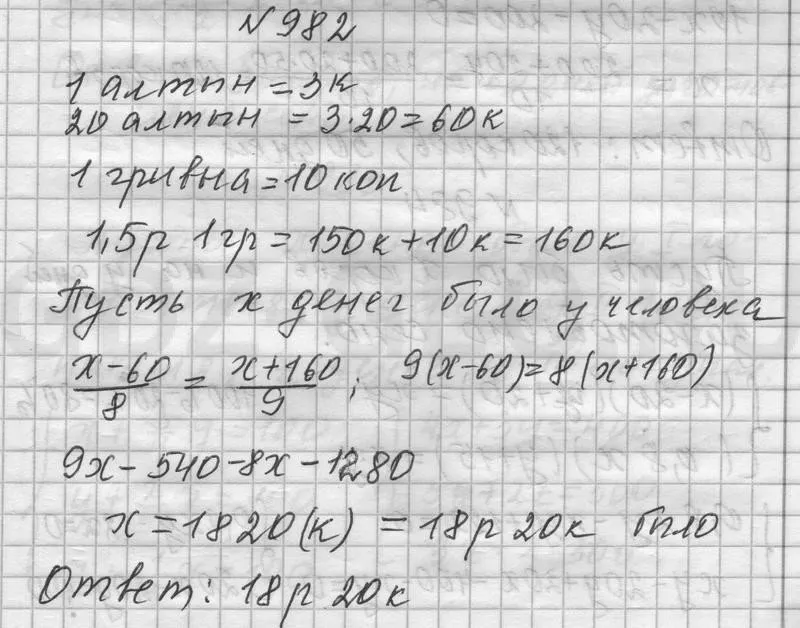 N 982
1 алтын = 3к
20 алтын = 3·20 = 60к
1 гривна = 10 коп
1,5р 1гр = 150к + 10к = 160к
Пусть х денег было у человека
(х-60)/8 = (х+160)/9 ; 9(х-60) = 8(х+160)
9х - 540 - 8х - 1280
х = 1820(к) = 18р 20к было
Ответ: 18р 20к